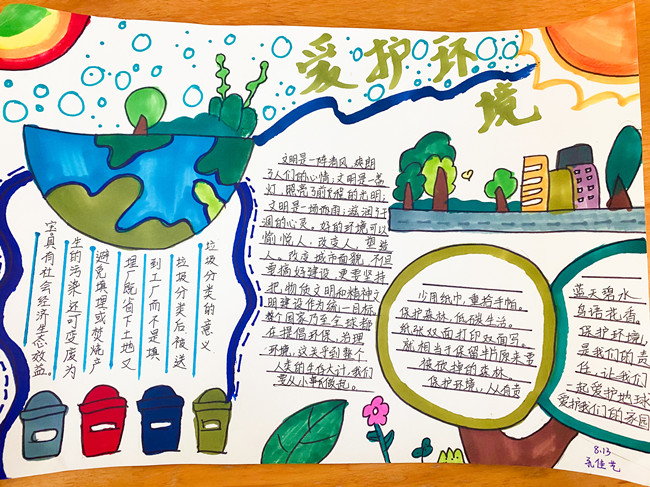 爱护环
境
垃圾分类的意义
垃圾分类后被送
到工厂而不是填
埋厂既省下土地又
避免填埋或焚烧产
生的污染还可变废为
宝具有社会经济生态效益。
文明是一阵清风,爽朗
了人们的心情;文明是一盏
灯,照亮了前程的光明;
文明是一场细雨,滋润干
涸的心灵。好的环境可以
愉悦人,改变人,塑造
人。改变城市面貌,不但
要搞好建设,更要坚持
把物质文明和精神文
明建设作为统一目标。
整个国家乃至全球都
在提倡环保,治理
环境,这关乎到整个
人类的生存大计,我们
要从小事做起。
少用纸巾,重拾手帕。
保护森林,低碳生活。
纸张双面打印双面写。
就相当于保留半片原来要
被砍掉的森林
保护环境,人人有责
蓝天碧水
鸟语花香
保护环境
是我们的责
任,让我们
一起爱护地球
爱护我们的家园
8.13